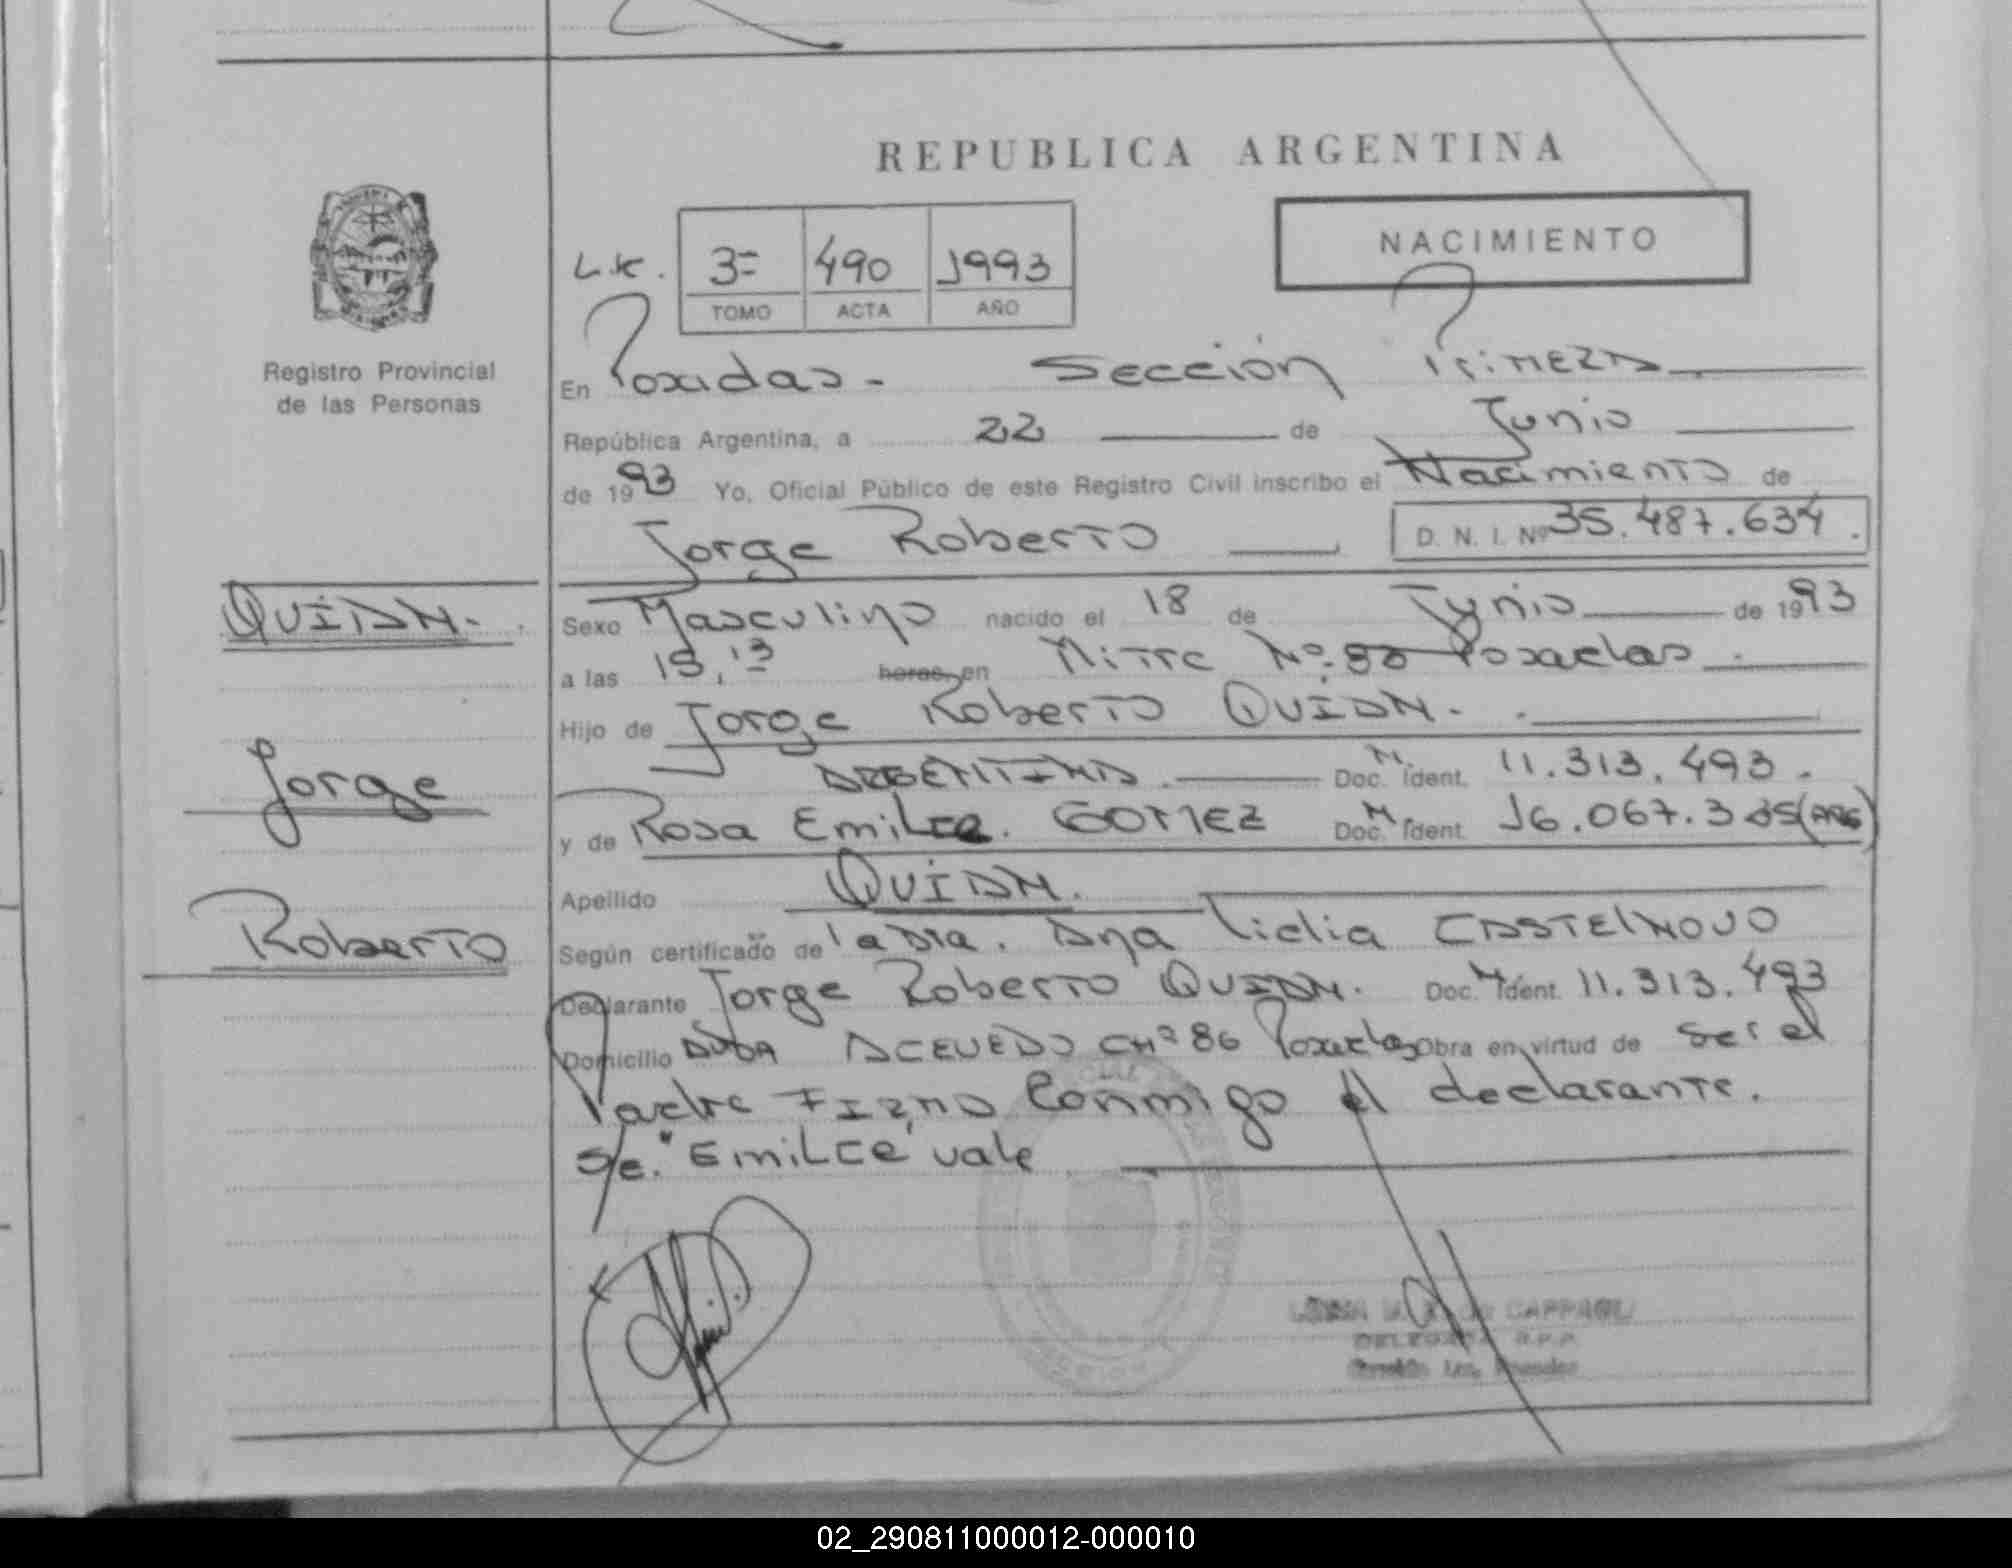 REPUBLICA ARGENTINA
NACIMIENTO
3= 490 1993
TOMO ACTA AÑO
Registro Provincial
de las Personas
En Posadas - Sección Primera
República Argentina, a 22 de Junio
de 1993 Yo, Oficial Público de este Registro Civil inscribo el Nacimiento de
Jorge Roberto D. N. I. Nº 35.487.634.
QUIDM.
Sexo Masculino nacido el 18 de Junio de 1993
a las horas, en Mitre Nº. 80 Posadas.
Hijo de Jorge Roberto QUIDM.
Jorge
ARGENTINA. Doc. M. Ident. 11.313.493.
y de Rosa Emilce. GOMEZ Doc. M. Ident. 16.067.335 (ARG)
Apellido QUIDM.
Roberto
Según certificado de la Dra. Ana Lidia CASTELNOVO
Declarante Jorge Roberto QUIDM. Doc. M. Ident. 11.313.493
Domicilio AVDA ACEVEDO CHª 86 Posadas Obra en virtud de ser el
Padre FIRMA Conmigo el declarante.
S/e. "Emilce" vale
DELEGADA R.P.P.
02_290811000012-000010